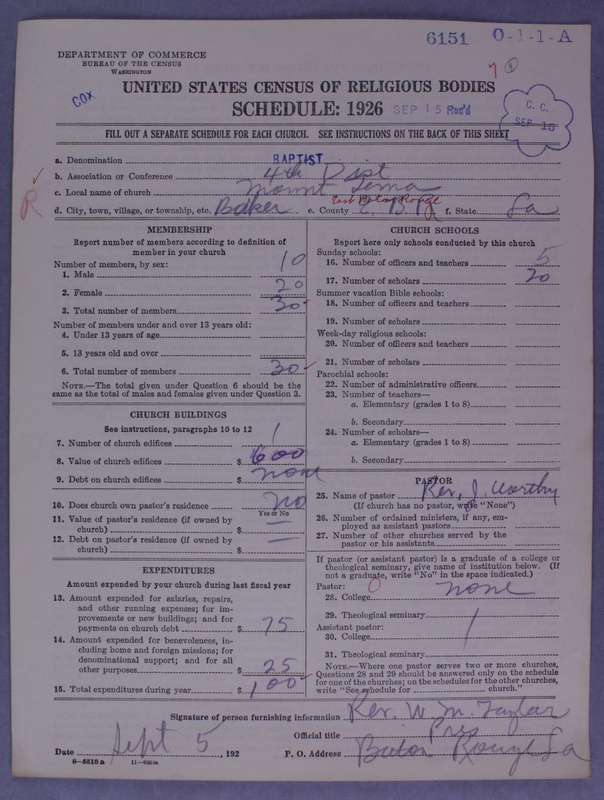 6151 O-1-1-A
DEPARTMENT OF COMMERCE
BUREAU OF THE CENSUS
WASHINGTON
COX
UNITED STATES CENSUS OF RELIGIOUS BODIES
SCHEDULE: 1926 SEP 15 Rec'd
C. C.
SEP 15
FILL OUT A SEPARATE SCHEDULE FOR EACH CHURCH. SEE INSTRUCTIONS ON THE BACK OF THIS SHEET
a. Denomination BAPTIST
b. Association or Conference 4th Dist
c. Local name of church Mount
R
d. City, town, village, or township, etc. Baker e. County E. B. R East Baton Rouge f. State La
MEMBERSHIP
Report number of members according to definition of member in your church
Number of members, by sex:
1. Male 10
2. Female 20
3. Total number of members 30
Number of members under and over 13 years old:
4. Under 13 years of age
5. 13 years old and over
6. Total number of members 30
NOTE.—The total given under Question 6 should be the same as the total of males and females given under Question 3.
CHURCH BUILDINGS
See instructions, paragraphs 10 to 12
7. Number of church edifices 1
8. Value of church edifices $ 600
9. Debt on church edifices $ none
10. Does church own pastor's residence no
Yes or No
11. Value of pastor's residence (if owned by church) $ —
12. Debt on pastor's residence (if owned by church) $ —
EXPENDITURES
Amount expended by your church during last fiscal year
13. Amount expended for salaries, repairs, and other running expenses; for improvements or new buildings; and for payments on church debt $ 75
14. Amount expended for benevolences, including home and foreign missions; for denominational support; and for all other purposes $ 25
15. Total expenditures during year $ 100
CHURCH SCHOOLS
Report here only schools conducted by this church
Sunday schools:
16. Number of officers and teachers 5
17. Number of scholars 20
Summer vacation Bible schools:
18. Number of officers and teachers
19. Number of scholars
Week-day religious schools:
20. Number of officers and teachers
21. Number of scholars
Parochial schools:
22. Number of administrative officers
23. Number of teachers—
a. Elementary (grades 1 to 8)
b. Secondary
24. Number of scholars—
a. Elementary (grades 1 to 8)
b. Secondary
PASTOR
25. Name of pastor Rev. J. Worthy
(If church has no pastor, write "None")
26. Number of ordained ministers, if any, employed as assistant pastors
27. Number of other churches served by the pastor or his assistants
If pastor (or assistant pastor) is a graduate of a college or theological seminary, give name of institution below. (If not a graduate, write "No" in the space indicated.)
Pastor: 0
28. College none
29. Theological seminary
Assistant pastor:
30. College
31. Theological seminary
NOTE.—Where one pastor serves two or more churches, Questions 28 and 29 should be answered only on the schedule for one of the churches; on the schedules for the other churches, write "See schedule for church."
Signature of person furnishing information Rev. W. M. Taylor
Official title Pres
Date Sept 5, 192 P. O. Address Baton Rouge La
8—5516 a